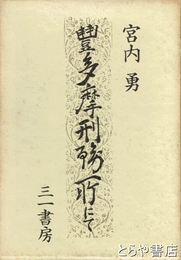 宮内 勇
豐多摩刑務所にて
三一書房
とらや書房